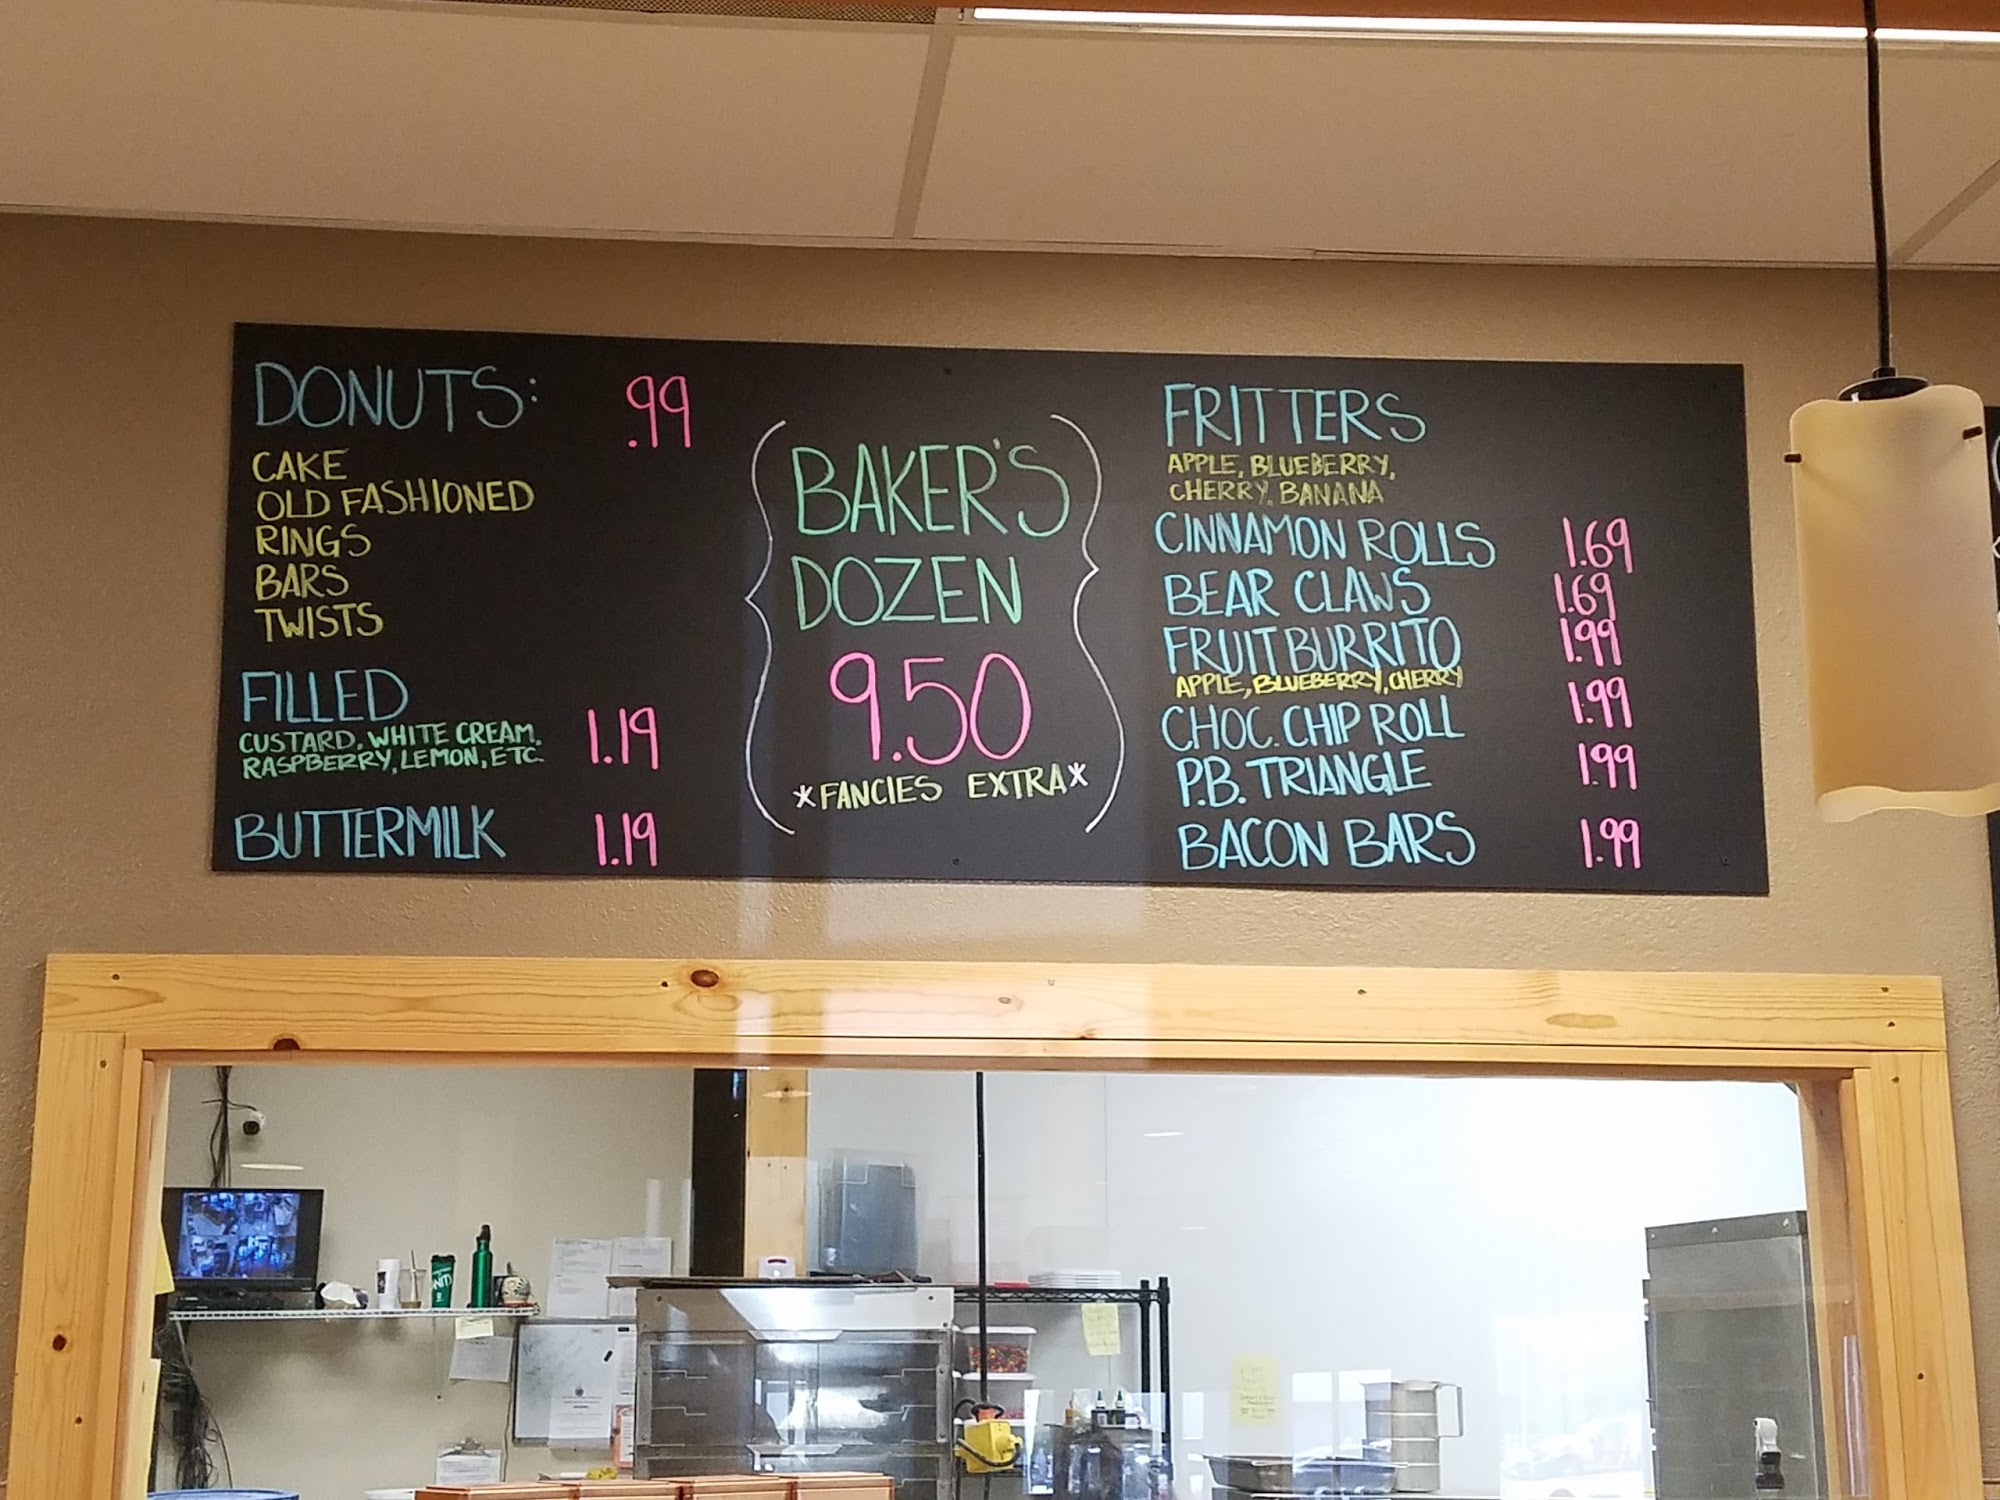 DONUTS: .99
CAKE
OLD FASHIONED
RINGS
BARS
TWISTS
FILLED
CUSTARD, WHITE CREAM, 1.19
RASPBERRY, LEMON, ETC.
BUTTERMILK 1.19
BAKER'S
DOZEN
9.50
*FANCIES EXTRA*
FRITTERS
APPLE, BLUEBERRY,
CHERRY, BANANA
CINNAMON ROLLS 1.69
BEAR CLAWS 1.69
FRUIT BURRITO 1.99
APPLE, BLUEBERRY, CHERRY
CHOC. CHIP ROLL 1.99
P.B. TRIANGLE 1.99
BACON BARS 1.99